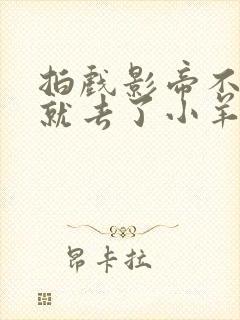 拍戏影帝不
就去了小羊
昂卡拉